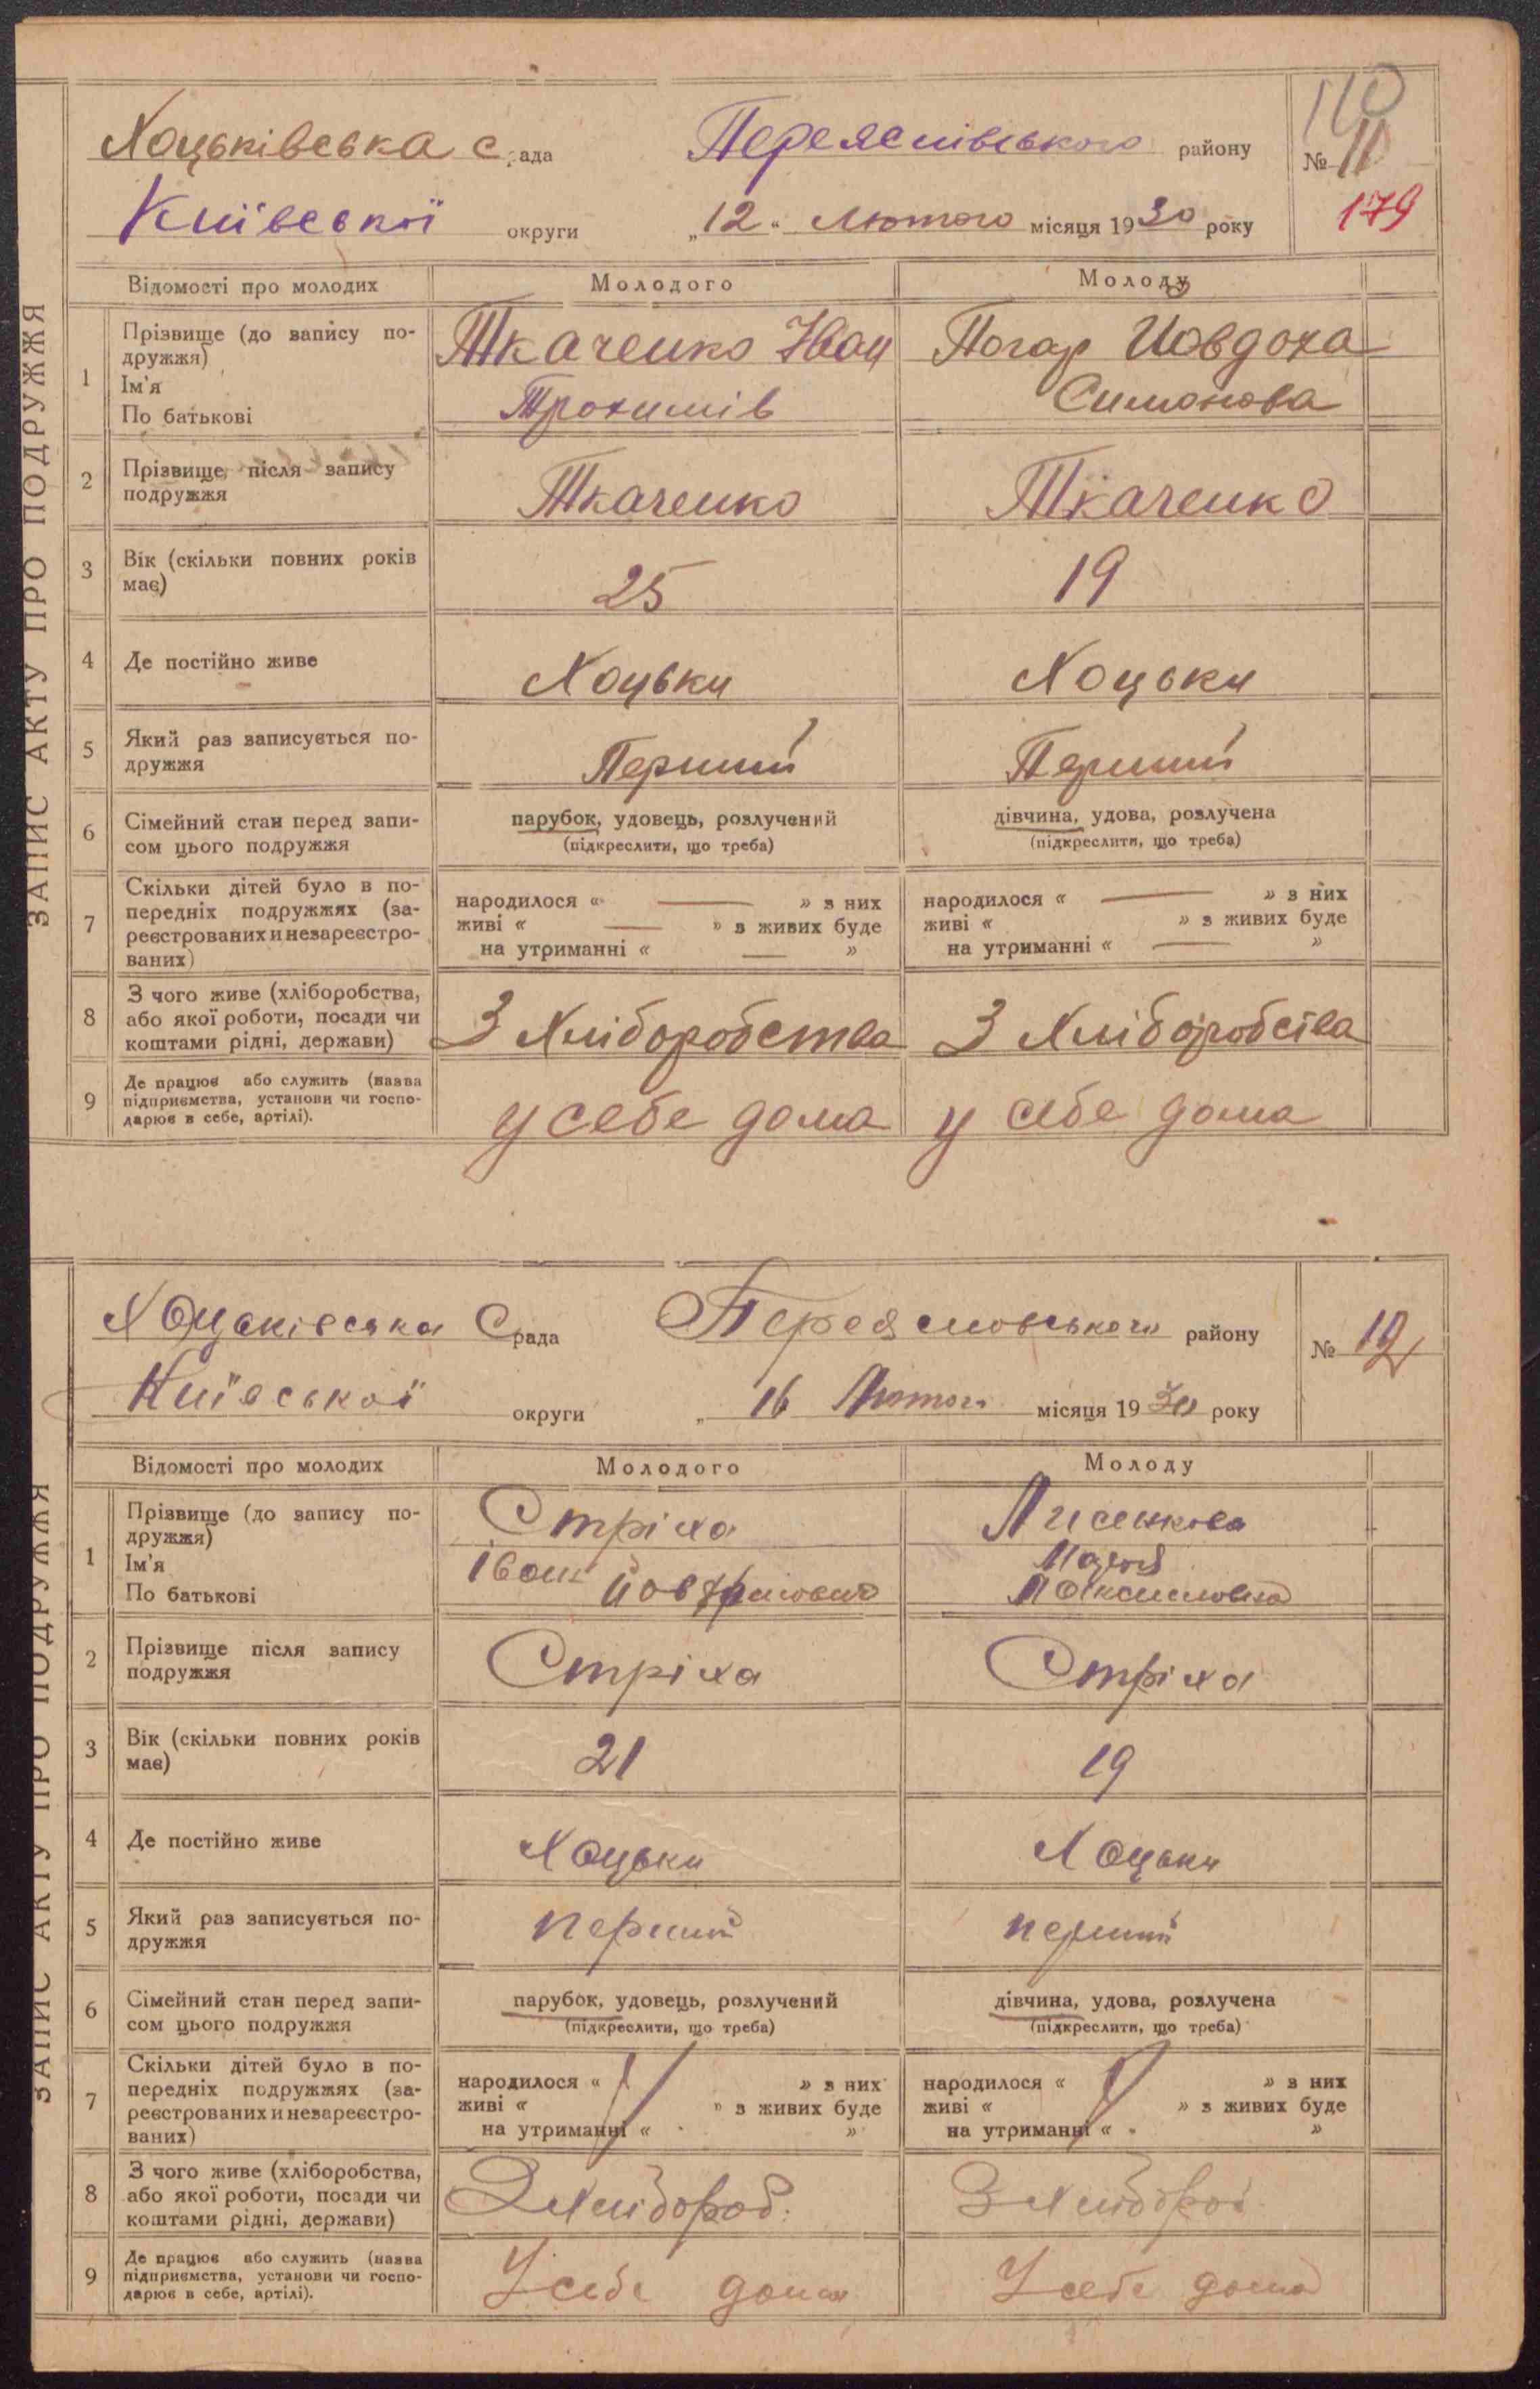 ЗАПИС АКТУ ПРО ПОДРУЖЖЯ
110
Хоцьківська с.рада Переяслівського району № 11
Київської округи „12“ Лютого місяця 1930 року 179
Відомості про молодих Молодого Молоду
1 Прізвище (до запису подружжя) Ткаченко Іван Погар Йовдоха
Ім'я
По батькові Трохимів Симонова
2 Прізвище після запису подружжя Ткаченко Ткаченко
3 Вік (скільки повних років має) 25 19
4 Де постійно живе Хоцьки Хоцьки
5 Який раз записується подружжя Перший Перший
6 Сімейний стан перед записом цього подружжя парубок, удовець, розлучений дівчина, удова, розлучена
(підкреслити, що треба) (підкреслити, що треба)
7 Скільки дітей було в попередніх подружжях (зареєстрованих и незареєстрованих)
народилося « — » з них народилося « — » з них
живі « — » з живих буде живі « » з живих буде
на утриманні « — » на утриманні « — »
8 З чого живе (хліборобства, або якої роботи, посади чи коштами рідні, держави) З Хліборобства З Хліборобства
9 Де працює або служить (назва підприємства, установи чи господарює в себе, артілі). у себе дома у себе дома
ЗАПИС АКТУ ПРО ПОДРУЖЖЯ
Хоцьківська С рада Переясловського району № 12
Київської округи „ 16 Лютого місяця 1930 року
Відомості про молодих Молодого Молоду
1 Прізвище (до запису подружжя) Стріха Лисенкова
Ім'я Іван
По батькові
2 Прізвище після запису подружжя Стріха Стріха
3 Вік (скільки повних років має) 21 19
4 Де постійно живе Хоцьки Хоцьки
5 Який раз записується подружжя перший перший
6 Сімейний стан перед записом цього подружжя парубок, удовець, розлучений дівчина, удова, розлучена
(підкреслити, що треба) (підкреслити, що треба)
7 Скільки дітей було в попередніх подружжях (зареєстрованих и незареєстрованих)
народилося « » з них народилося « » з них
живі « » з живих буде живі « » з живих буде
на утриманні « » на утриманні « »
8 З чого живе (хліборобства, або якої роботи, посади чи коштами рідні, держави) З Хлібороб. З Хлібороб.
9 Де працює або служить (назва підприємства, установи чи господарює в себе, артілі). У себе дома У себе дома